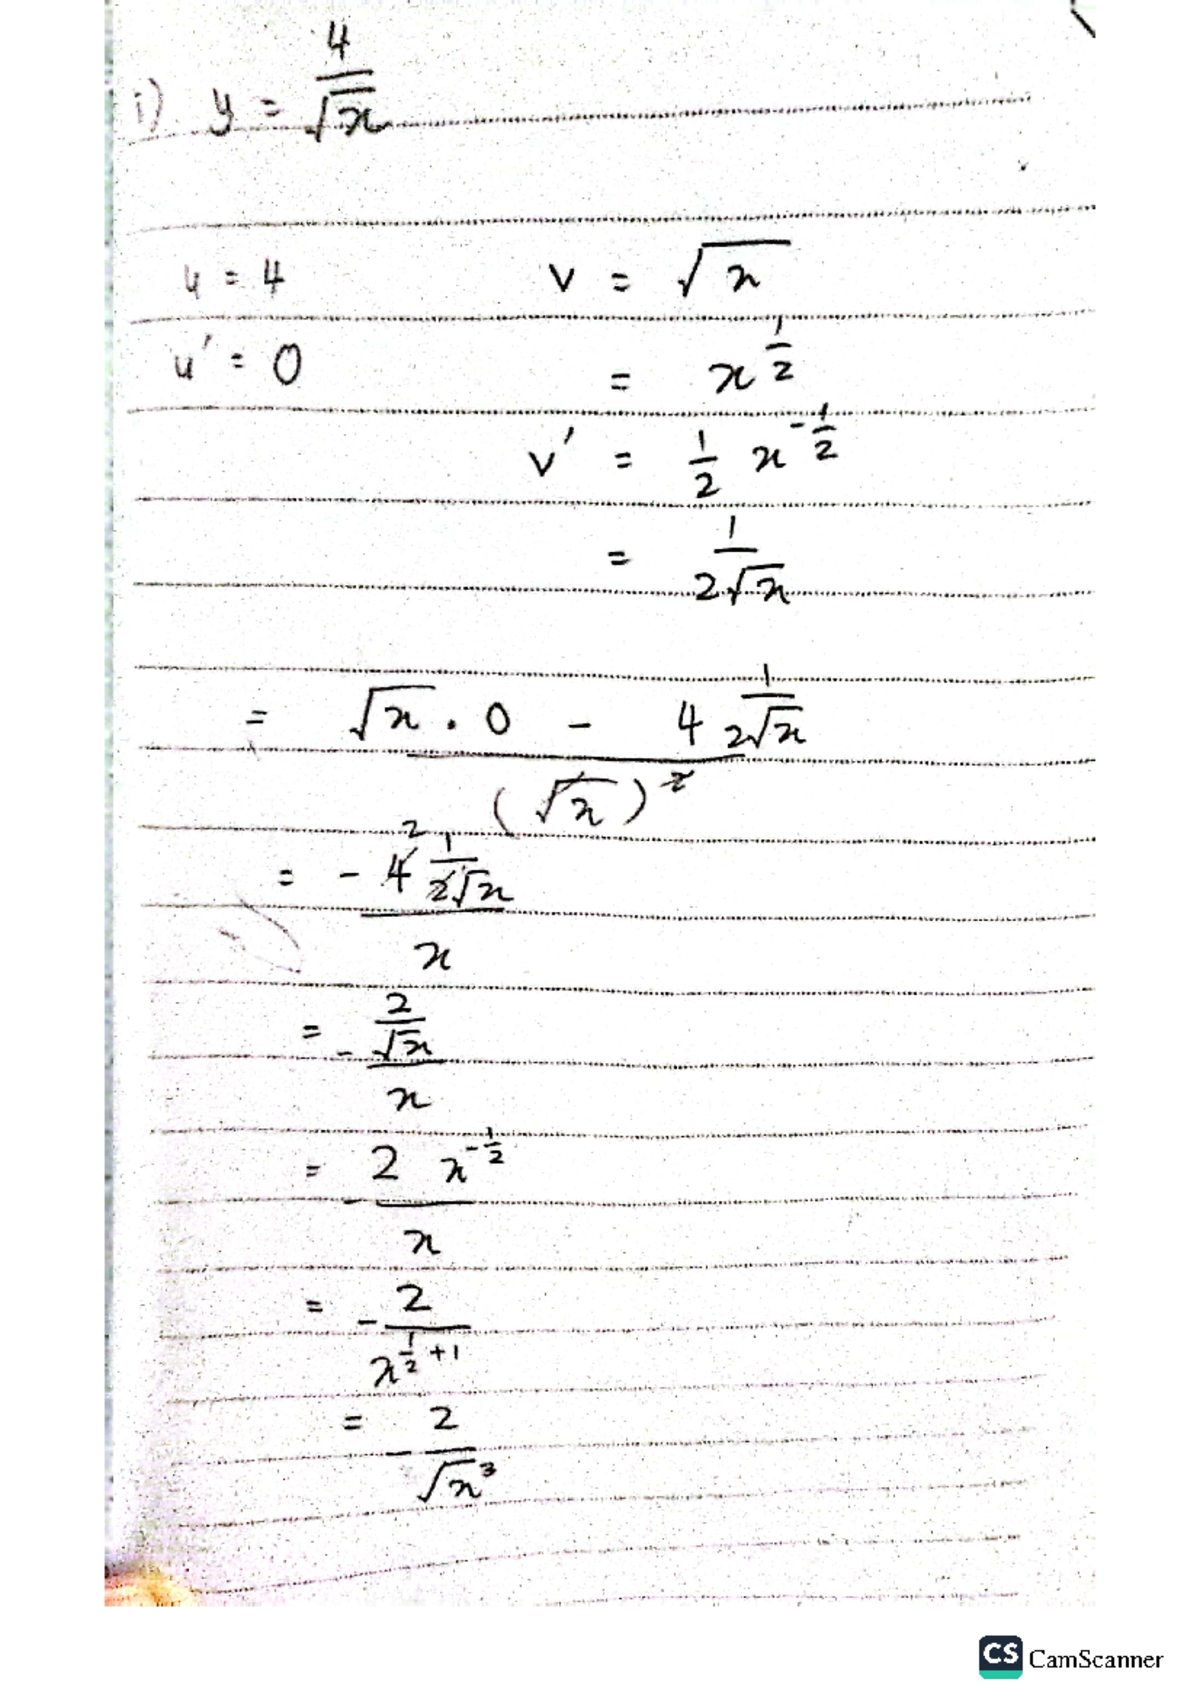 i) y = 4/√x
u = 4 v = √x
u' = 0 = x^(1/2)
v' = 1/2 x^(-1/2)
= 1/(2√x)
= (√x . 0 - 4 1/(2√x))/(√x)^2
= (-4 2 1/(2√x))/x
= -(2/√x)/x
= -(2 x^(-1/2))/x
= -2/x^(1/2 + 1)
= -2/√x^3
CS CamScanner